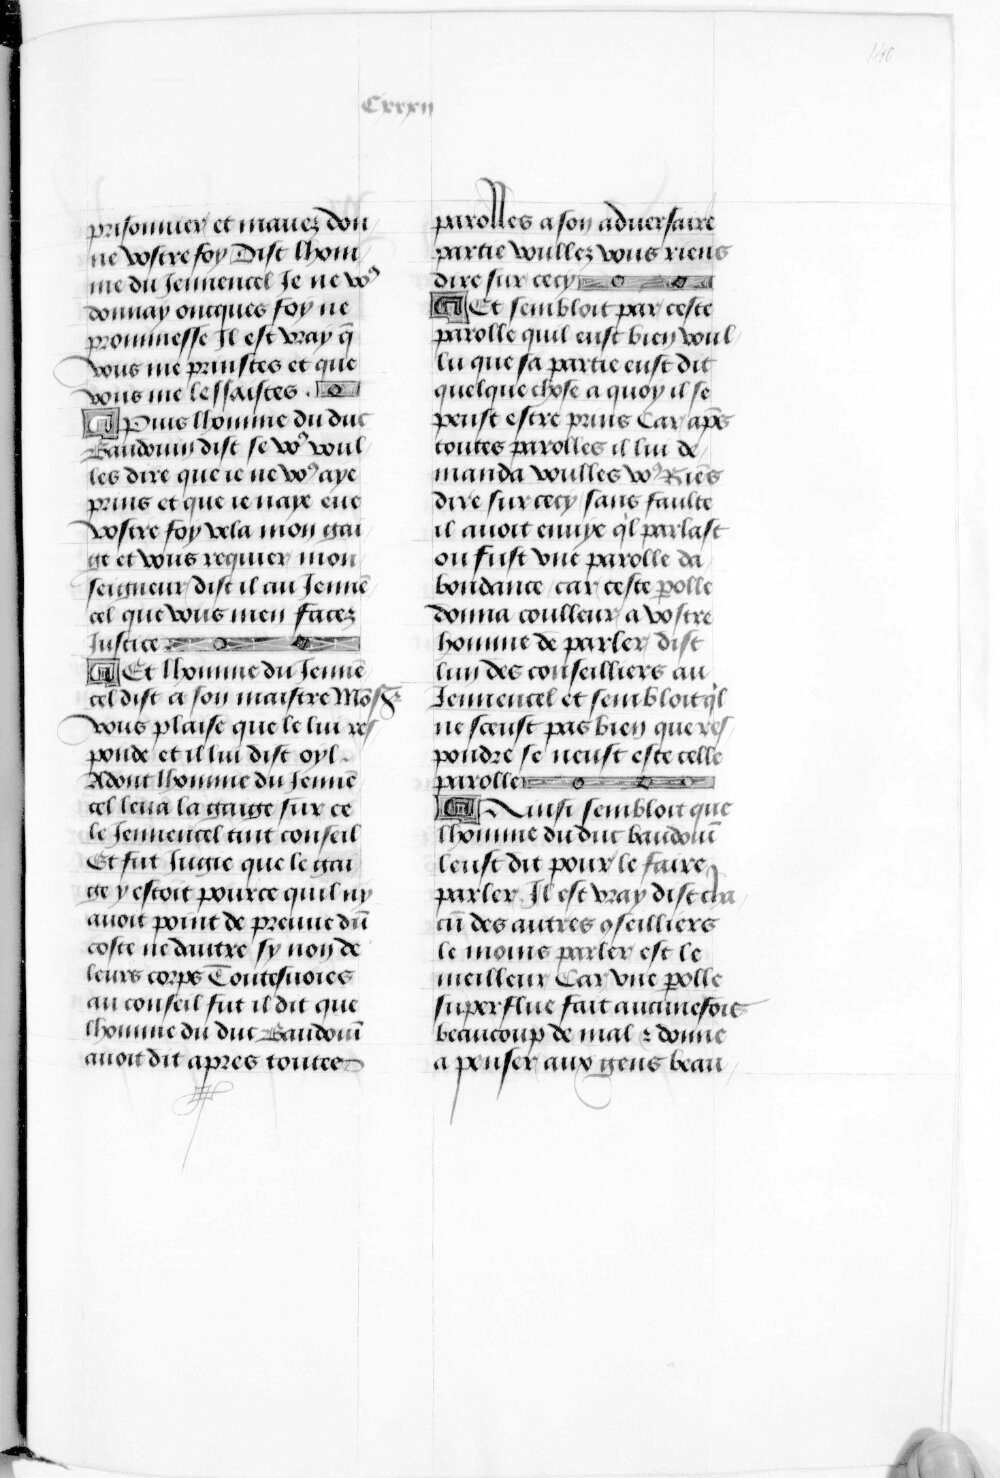 140
Cxxxii
prisonnier et mavez don
ne vostre foy Dist lhom
me du Jennencel Je ne vo9
donnay oncques foy ne
prommesse Il est vray q̄
vous me prinstes et que
vous me lessaistes .
Puis lhomme du duc
Baudouin dist se vo9 voul
les dire que ie ne vo9 aye
prins et que ie naye eue
vostre foy vela mon gai
ge et vous requier mon
seigneur dist il au Jenne̅
cel que vous men facez
Justice
Et lhomme du Jenne̅
cel dist a son maistre Mo̅sr
vous plaise que le lui res
ponde et il lui dist oyl .
Adont lhomme du Jenne̅
cel leua la gaige sur ce
le Jennencel tint conseil
Et fut Jugie que le gai
ge y estoit pource quil ny
auoit point de preuue du̅
coste ne dautre sy non de
leurs corps Toutesuoies
au conseil fut il dit que
lhomme du duc Baudoui̅
auoit dit apres toutes
parolles a son aduersaire
partie voullez vous riens
dire sur cecy
Et sembloit par ceste
parolle quil eust bien voul
lu que sa partie eust dit
quelque chose a quoy il se
peust estre prins Car ap̅s
toutes parolles il lui de
manda voulles vo9 Rie̅s
dire sur cecy sans faulte
il auoit enuye ql parlast
ou fust vne parolle da
bondance car ceste polle
donna coulleur a vostre
homme de parler dist
lun des conseilliers au
Jennencel et sembloit ql
ne sceust pas bien que res
pondre se neust este celle
parolle
Ainsi sembloit que
lhomme du duc baudoui̅
leust dit pour le faire
parler Il est vray dist
cu̅ des autres 9seilliers
le moins parler est le
meilleur Car vne polle
superflue fait aucunesfois
beaucoup de mal ⁊ donne
a penser aux gens beau